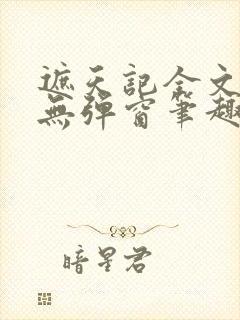 遮天記全文
無彈窗筆趣
暗星君